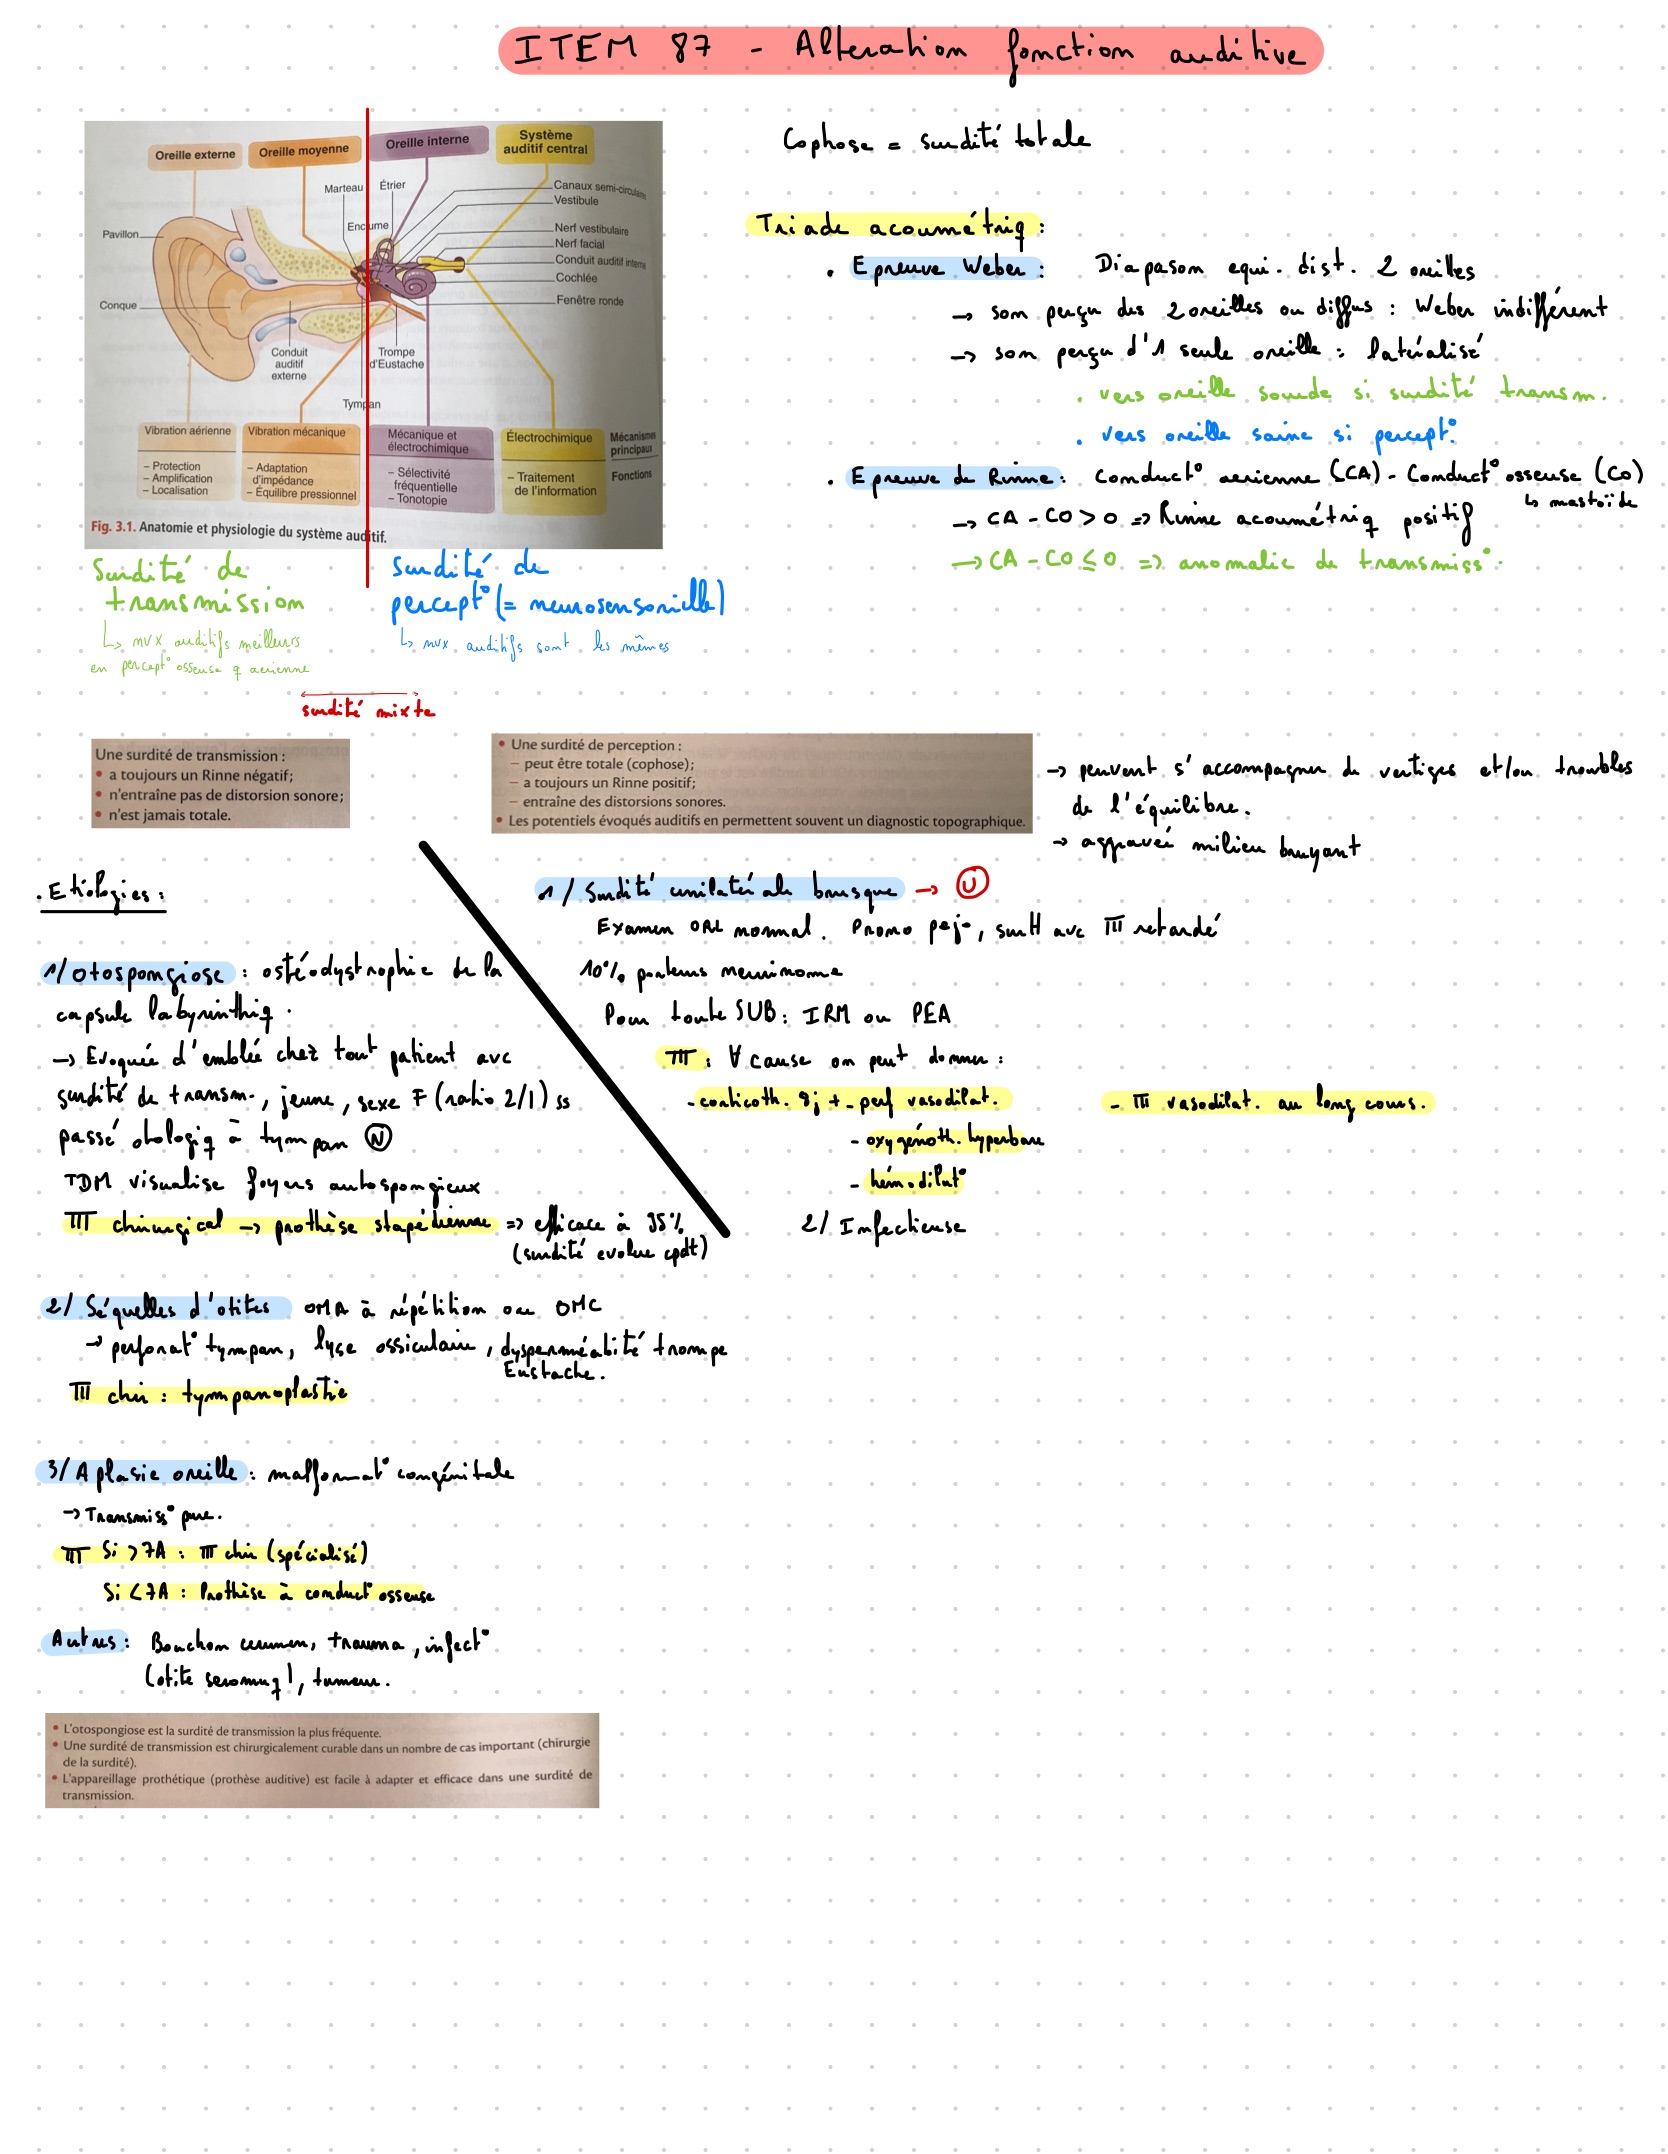 ITEM 87 - Alteration fonction auditive
Oreille externe
Oreille moyenne
Oreille interne
Système
auditif central
Marteau
Étrier
Enclume
Canaux semi-circulaires
Vestibule
Nerf vestibulaire
Nerf facial
Conduit auditif interne
Cochlée
Fenêtre ronde
Pavillon
Conque
Conduit
auditif
externe
Trompe
d'Eustache
Tympan
Vibration aérienne
– Protection
– Amplification
– Localisation
Vibration mécanique
– Adaptation
d'impédance
– Équilibre pressionnel
Mécanique et
électrochimique
– Sélectivité
fréquentielle
– Tonotopie
Électrochimique
– Traitement
de l'information
Mécanismes
principaux
Fonctions
Fig. 3.1. Anatomie et physiologie du système auditif.
Surdité de
transmission
↳ nvx auditifs meilleurs
en percept° osseuse q aerienne
Surdité de
percept° (= neurosensorielle)
↳ nvx auditifs sont les mêmes
surdité mixte
Cophose = surdité totale
Triade acoumétriq :
. Epreuve Weber : Diapason equi. dist. 2 oreilles
→ son perçu des 2 oreilles ou diffus : Weber indifférent
→ son perçu d'1 seule oreille : latéralisé
. vers oreille sourde si surdité transm.
. vers oreille saine si percept°
. Epreuve de Rinne : Conduct° aerienne (CA) - Conduct° osseuse (CO)
↳ mastoïde
→ CA - CO > 0 => Rinne acoumétriq positif
→ CA - CO ≤ 0 => anomalie de transmiss°.
Une surdité de transmission :
• a toujours un Rinne négatif;
• n'entraîne pas de distorsion sonore;
• n'est jamais totale.
• Une surdité de perception :
– peut être totale (cophose);
– a toujours un Rinne positif;
– entraîne des distorsions sonores.
• Les potentiels évoqués auditifs en permettent souvent un diagnostic topographique.
→ peuvent s'accompagner de vertiges et/ou troubles
de l'équilibre.
→ aggravée milieu bruyant
. Etiologies :
1/ Otospongiose : ostéodystrophie de la
capsule labyrinthiq.
→ Evoquée d'emblée chez tout patient avc
surdité de transm., jeune, sexe F (ratio 2/1) ss
passé otologiq à tympan (N)
TDM visualise foyers autospongieux
TTT chirurgical → prothèse stapédienne => efficace à 95%
(surdité evolue cpdt)
2/ Séquelles d'otites OMA à répétition ou OMC
→ perforat° tympan, lyse ossiculaire, dysperméabilité trompe
Eustache.
TTT chir : tympanoplastie
3/ Aplasie oreille : malformat° congénitale
→ Transmiss° pure.
TTT Si >7A : TTT chir (spécialisé)
Si <7A : Prothèse à conduct° osseuse
Autres : Bouchon cerumen, trauma, infect°
(otite seromuq), tumeur.
• L'otospongiose est la surdité de transmission la plus fréquente.
• Une surdité de transmission est chirurgicalement curable dans un nombre de cas important (chirurgie
de la surdité).
• L'appareillage prothétique (prothèse auditive) est facile à adapter et efficace dans une surdité de
transmission.
1/ Surdité unilatérale brusque → (U)
Examen ORL normal. Prono pejo, surtt avc TTT retardé
10% porteurs neurinome
Pour toute SUB : IRM ou PEA
TTT : ∀ cause on peut donner :
- corticoth. 8j +- perf vasodilat.
- oxygénoth. hyperbare
- hémodilut°
- TTT vasodilat. au long cours.
2/ Infectieuse